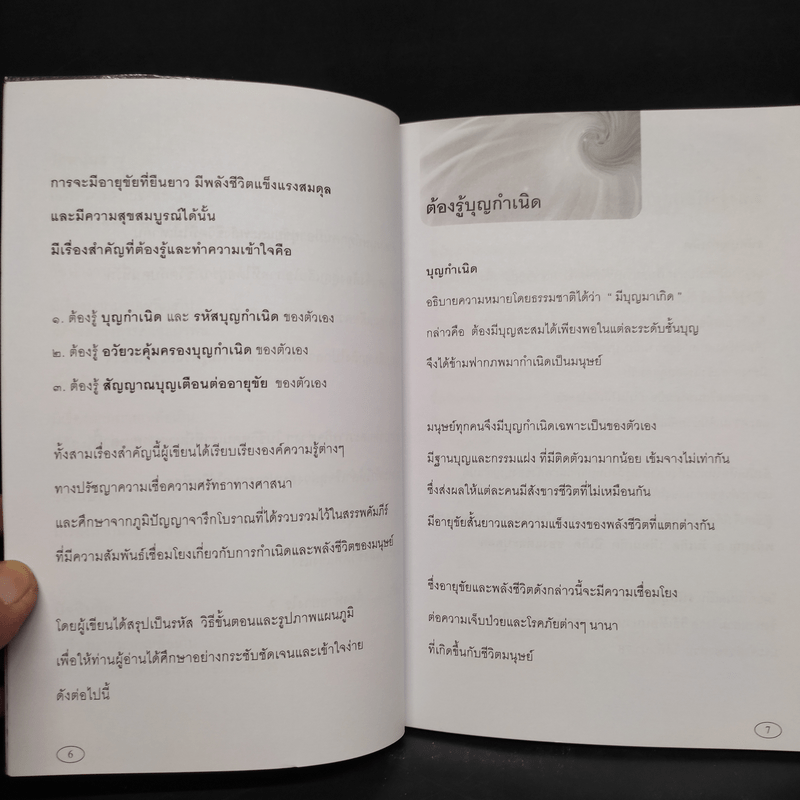 การจะมีอายุขัยที่ยืนยาว มีพลังชีวิตแข็งแรงสมดุล
และมีความสุขสมบูรณ์ได้นั้น
มีเรื่องสำคัญที่ต้องรู้และทำความเข้าใจคือ
๑. ต้องรู้ บุญกำเนิด และ รหัสบุญกำเนิด ของตัวเอง
๒. ต้องรู้ อวัยวะคุ้มครองบุญกำเนิด ของตัวเอง
๓. ต้องรู้ สัญญาณบุญเตือนต่ออายุขัย ของตัวเอง
ทั้งสามเรื่องสำคัญนี้ผู้เขียนได้เรียบเรียงองค์ความรู้ต่างๆ
ทางปรัชญาความเชื่อความศรัทธาทางศาสนา
และศึกษาจากภูมิปัญญาจารึกโบราณที่ได้รวบรวมไว้ในสรรพคัมภีร์
ที่มีความสัมพันธ์เชื่อมโยงเกี่ยวกับการกำเนิดและพลังชีวิตของมนุษย์
โดยผู้เขียนได้สรุปเป็นรหัส วิธีขั้นตอนและรูปภาพแผนภูมิ
เพื่อให้ท่านผู้อ่านได้ศึกษาอย่างกระชับชัดเจนและเข้าใจง่าย
ดังต่อไปนี้
6
ต้องรู้บุญกำเนิด
บุญกำเนิด
อธิบายความหมายโดยธรรมชาติได้ว่า " มีบุญมาเกิด "
กล่าวคือ ต้องมีบุญสะสมได้เพียงพอในแต่ละระดับชั้นบุญ
จึงได้ข้ามฟากภพมากำเนิดเป็นมนุษย์
มนุษย์ทุกคนจึงมีบุญกำเนิดเฉพาะเป็นของตัวเอง
มีฐานบุญและกรรมแฝง ที่มีติดตัวมามากน้อย เข้มจางไม่เท่ากัน
ซึ่งส่งผลให้แต่ละคนมีสังขารชีวิตที่ไม่เหมือนกัน
มีอายุขัยสั้นยาวและความแข็งแรงของพลังชีวิตที่แตกต่างกัน
ซึ่งอายุขัยและพลังชีวิตดังกล่าวนี้จะมีความเชื่อมโยง
ต่อความเจ็บป่วยและโรคภัยต่างๆ นานา
ที่เกิดขึ้นกับชีวิตมนุษย์
7